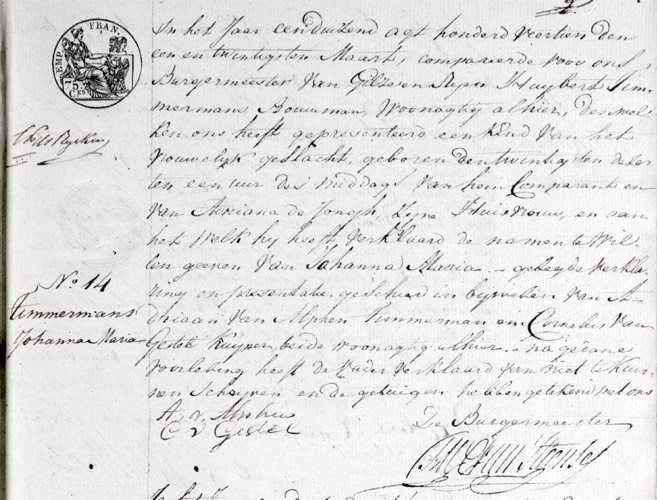 In het Jaar eenduizend agt honderd veertien den
een en twintigsten Maart, compareerde voor ons,
Burgermeester van Gilze en Reyen Huybert Tim
mermans Bouwman, woonagtig alhier, den wel
ken ons heeft gepresenteerd een kind van het
vrouwelyk geslacht, geboren den twintigsten dezer
ten een uur des middags van hem Comparant en
van Adriana de Jongh zyne Huisvrouw, en aan
het welk hy heeft verklaard de namen te wil
len geeven van Johanna Maria - gelegde verkla
ring en presentatie geschied in byweesen van A
driaan van Alphen timmerman en Cornelis van
Gestel Kuyper, beide woonagtig alhier - na gedane
voorlezing heeft de vader verklaard van niet te kun
nen Schryven en de getuigen hebben getekend met ons
A. v. Alphen
C v Gestel
De Burgermeester
EMP. FRAN.
5
No 14
Timmermans
Johanna Maria